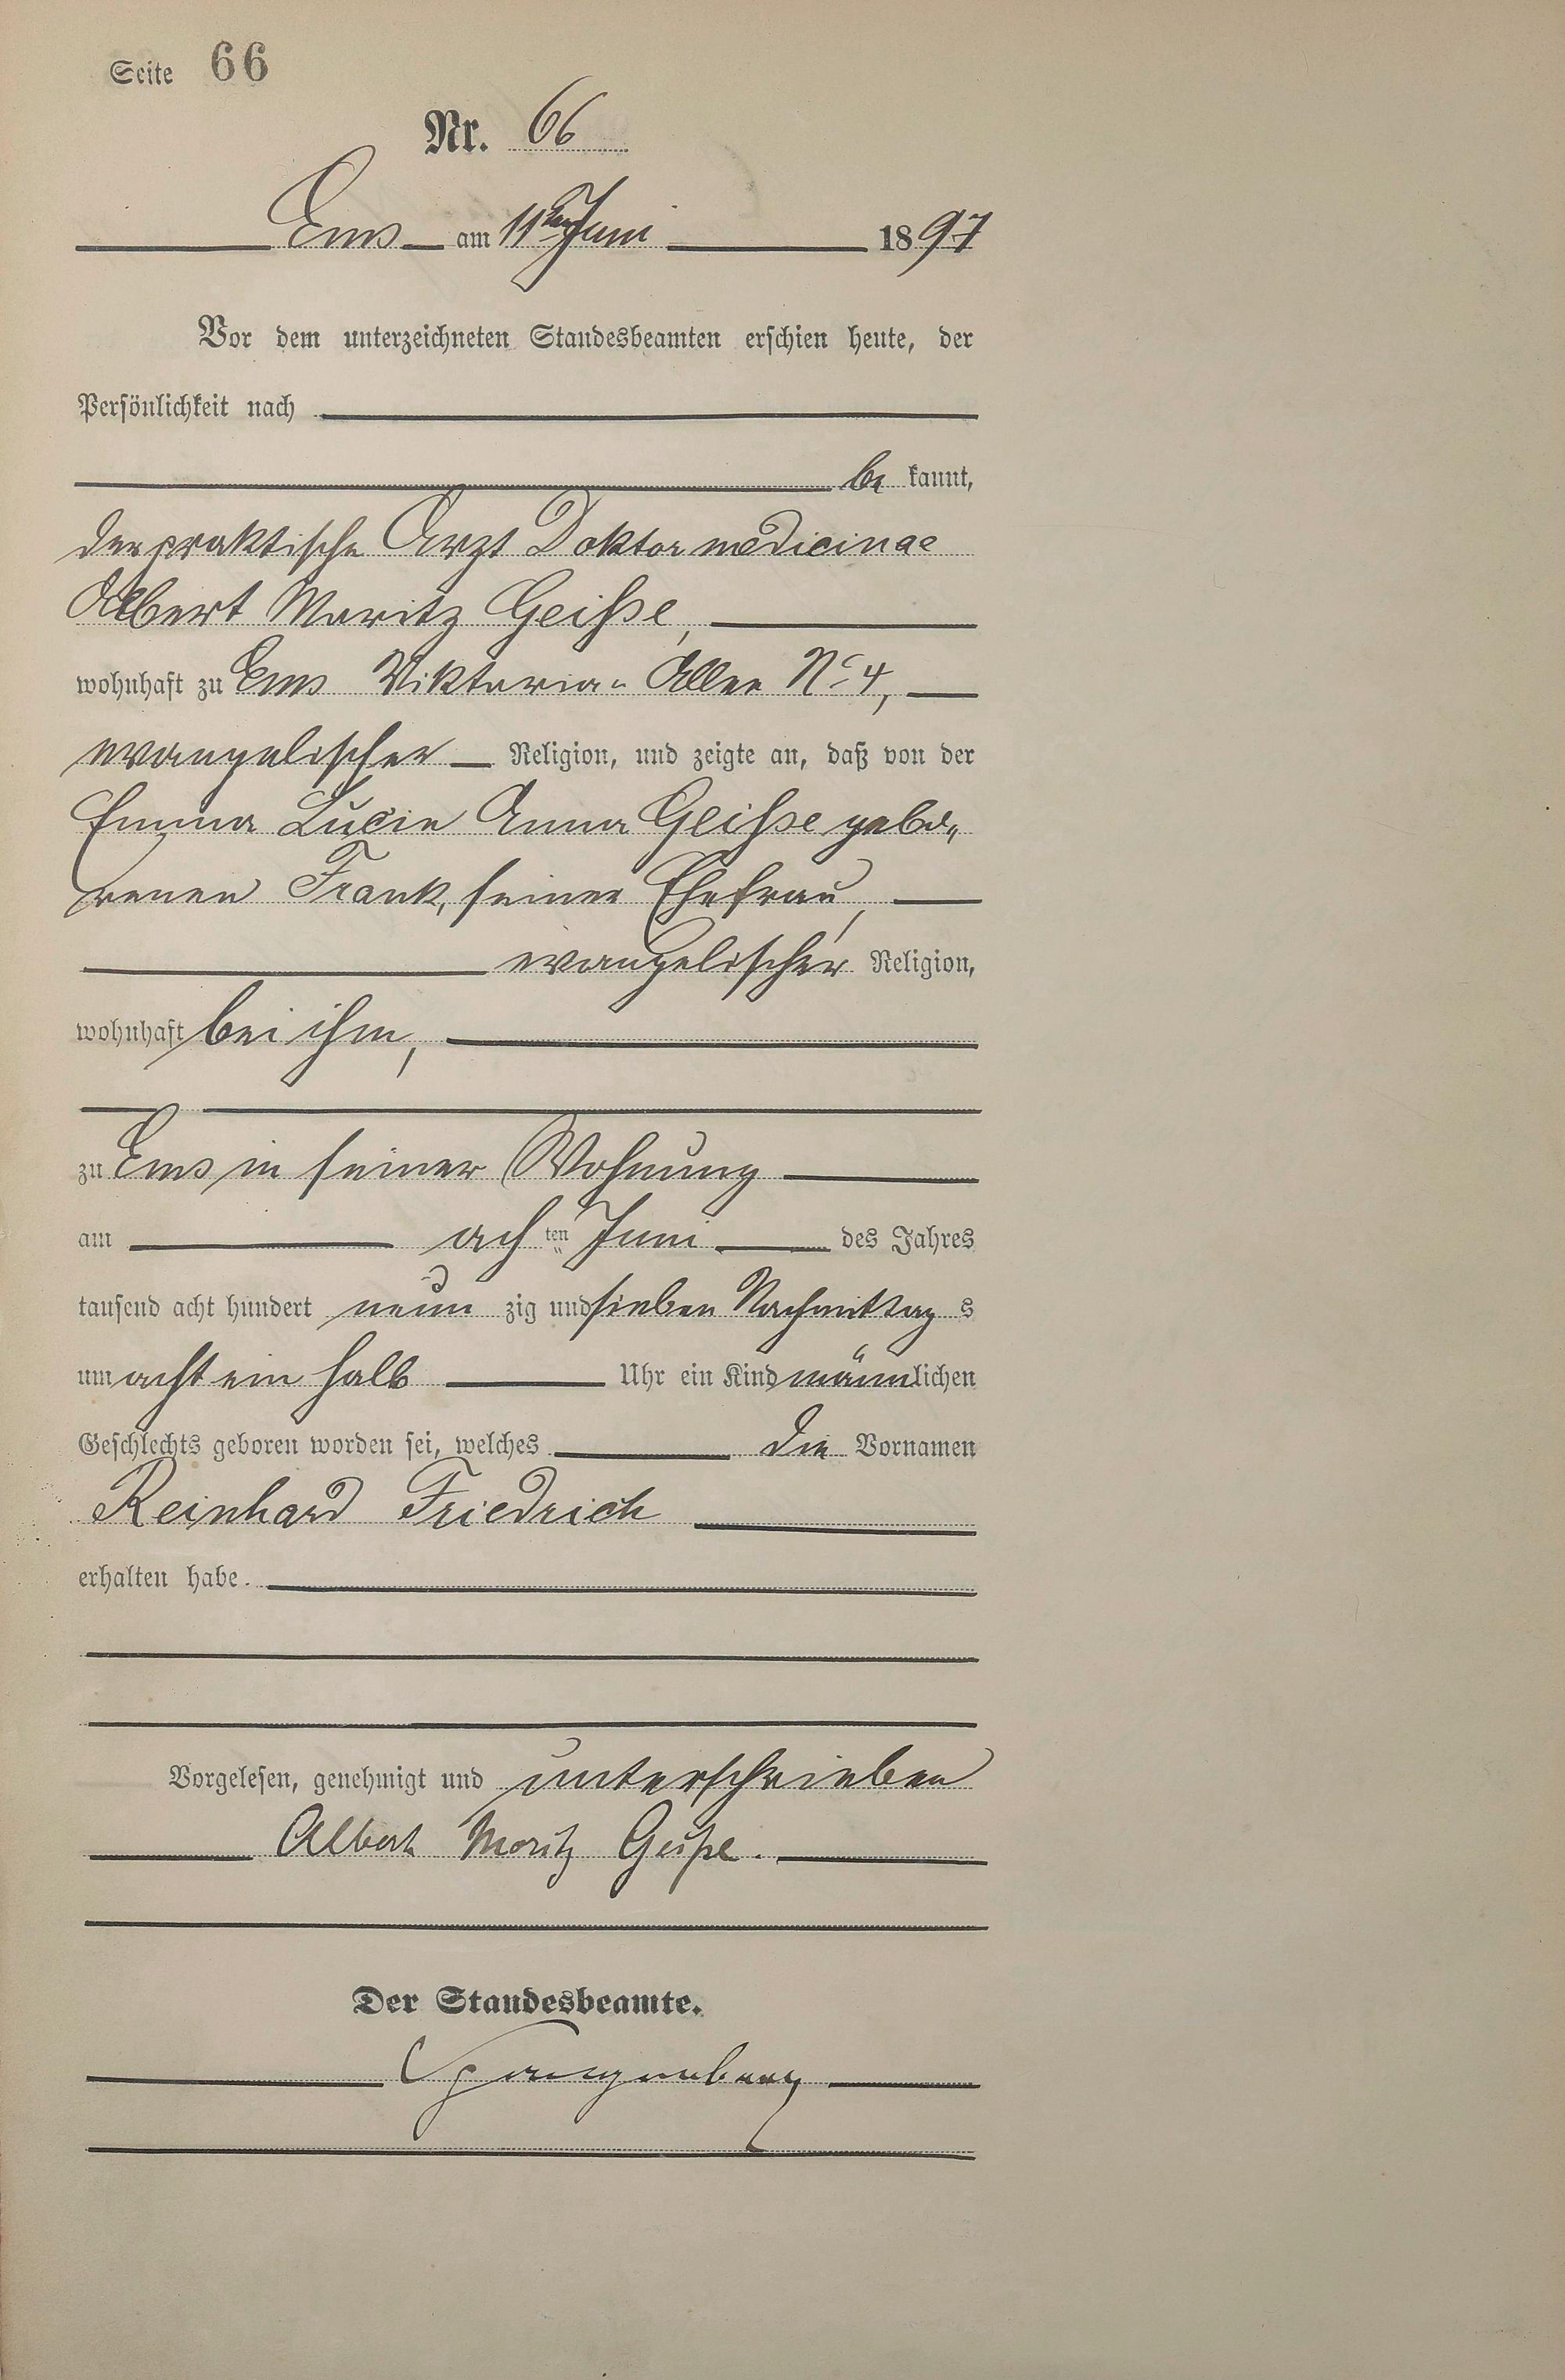 Seite 66
Nr. 66
Ems am 11ten Juni 1897
Vor dem unterzeichneten Standesbeamten erschien heute, der
Persönlichkeit nach
be kannt,
der praktische Arzt Doktor medicinae
Albert Moritz Geiße,
wohnhaft zu Ems Viktoria- Allee No 4,
evangelischer Religion, und zeigte an, daß von der
Emma Lucie Anna Geiße gebo„
renen Frank, seiner Ehefrau,
evangelischer Religion,
wohnhaft bei ihm,
zu Ems in seiner Wohnung
am achten Juni des Jahres
tausend acht hundert neun zig und sieben Nachmittag s
um acht ein halb Uhr ein Kind männlichen
Geschlechts geboren worden sei, welches die Vornamen
Reinhard Friedrich
erhalten habe.
Vorgelesen, genehmigt und unterschrieben
Albert Moritz Geiße.
Der Standesbeamte.
Spangenberg